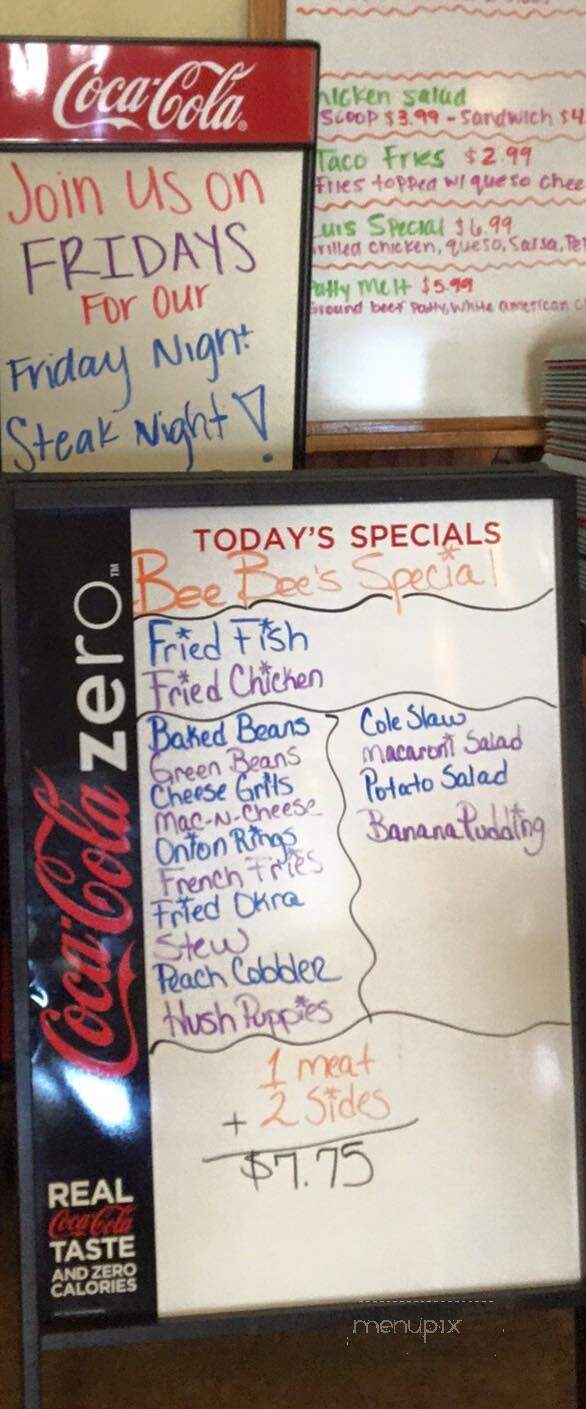 Coca-Cola
Join us on
FRIDAYS
For our
Friday Night
Steak Night!
hicken salad
Scoop $3.99 - Sandwich $4
Taco Fries $2.99
Fries topped w/ queso chee
Luis Special $6.99
rilled chicken, queso, Salsa, Pe
Patty Melt $5.99
Ground beef Patty, White american c
TODAY'S SPECIALS
Bee Bee's Special
Fried Fish
Fried Chicken
Baked Beans
Green Beans
Cheese Grits
Mac-N-Cheese
Onion Rings
French Fries
Fried Okra
Stew
Peach Cobbler
Hush Puppies
Cole Slaw
Macaroni Salad
Potato Salad
Banana Pudding
1 meat
+ 2 Sides
$7.75
Coca-Cola zero™
REAL
Coca-Cola
TASTE
AND ZERO
CALORIES
menupix